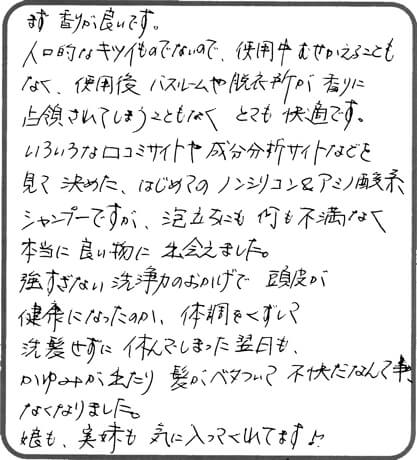 まず 香りが良いです。
人口的なキツイものでないので、使用中 むせかえることも
なく、使用後 バスルームや脱衣所が 香りに
占領されてしまうこともなく とても 快適です。
いろいろな口コミサイトや 成分分析サイトなどを
見て 決めた、はじめての ノンシリコン&アミノ酸系
シャンプーですが、泡立ちにも 何も不満なく
本当に 良い物に 出会えました。
強すぎない 洗浄力のおかげで 頭皮が
健康になったのか、体調をくずして
洗髪せずに 休んでしまった 翌日も、
かゆみが出たり 髪がベタついて 不快だなんて事、
なくなりました。
娘も、実妹も 気に入ってくれてます♪